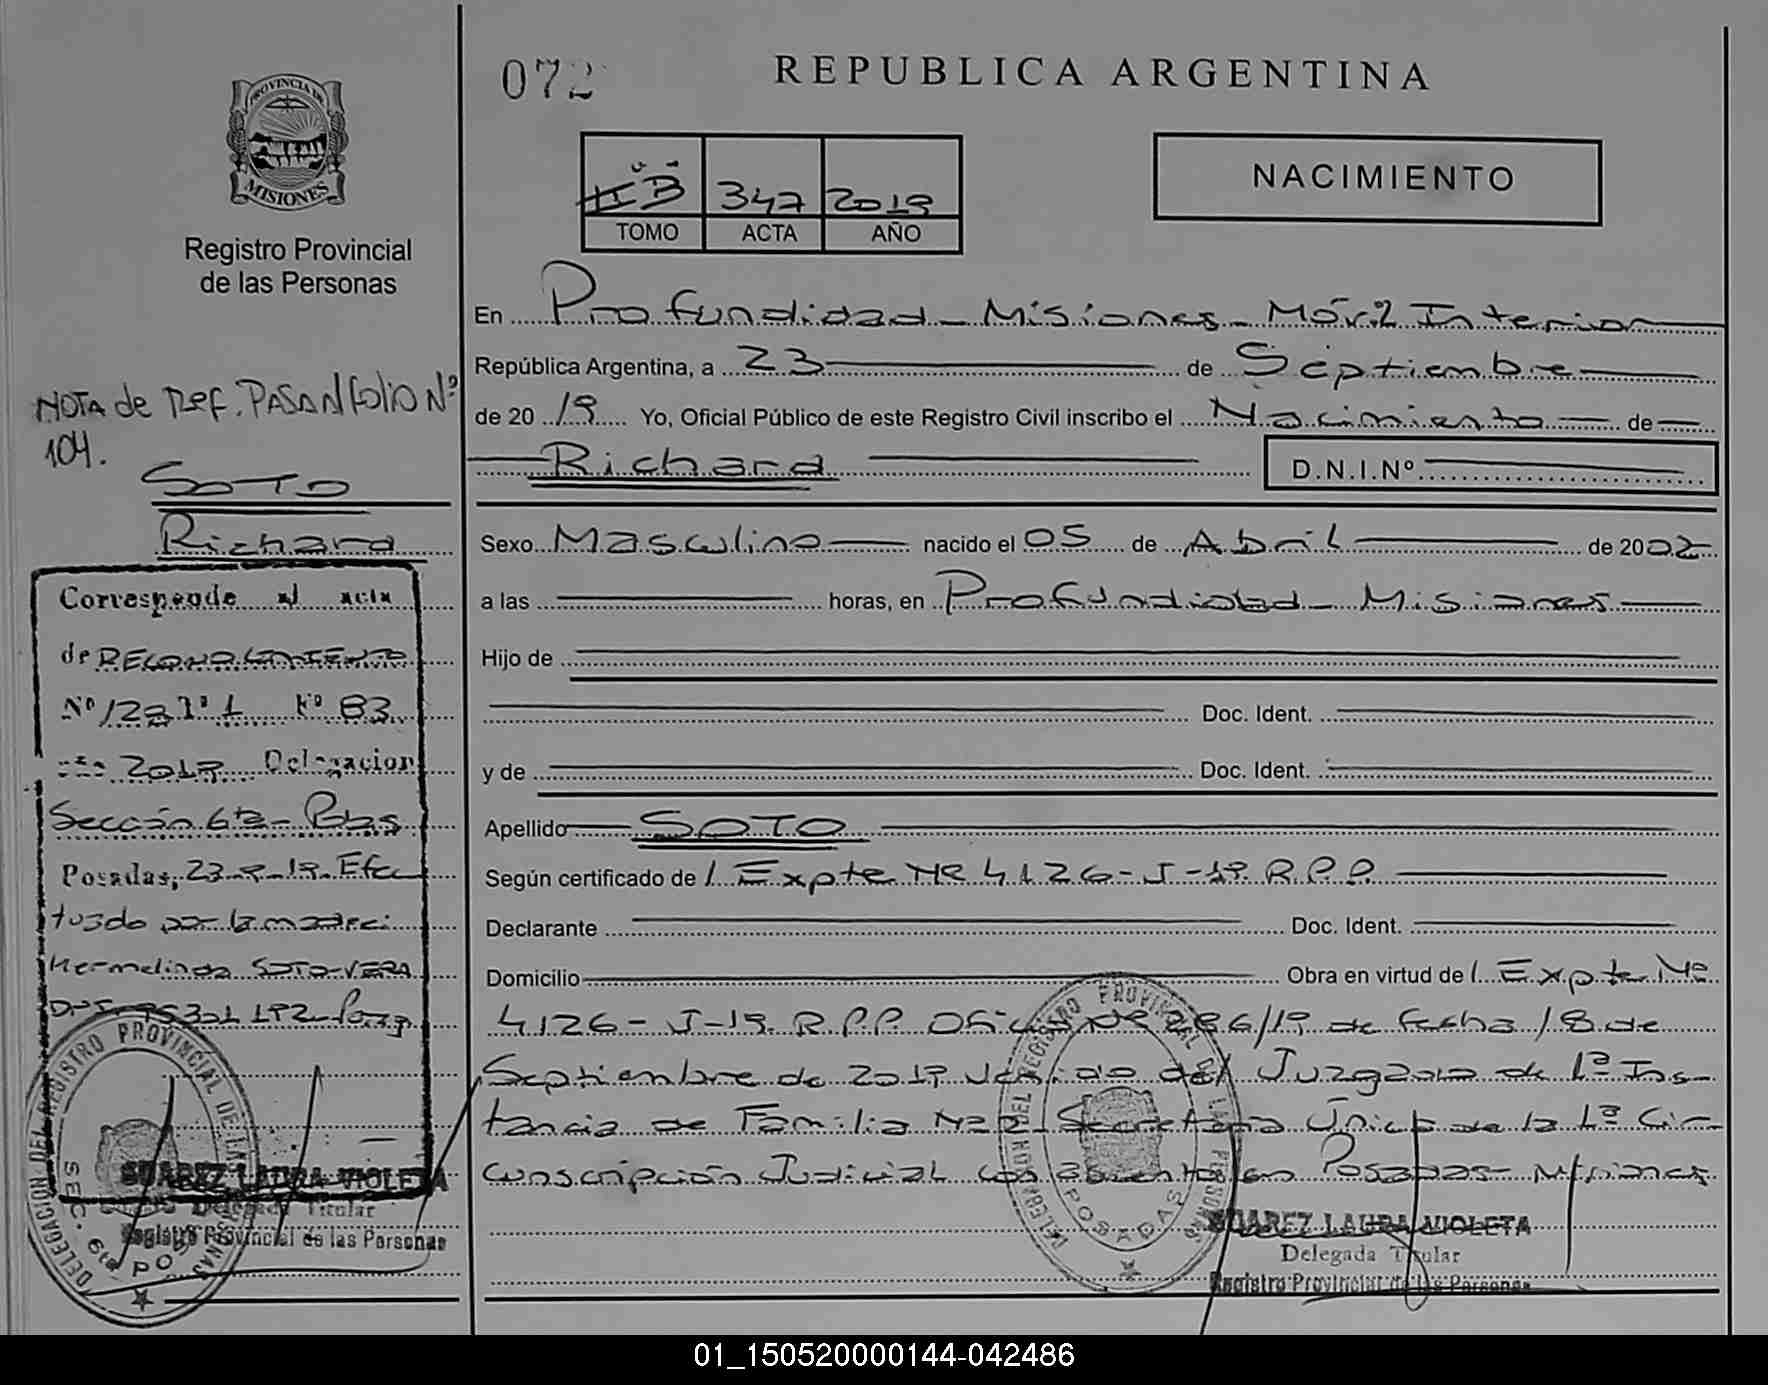 PROVINCIA DE
MISIONES
Registro Provincial
de las Personas
NOTA de Ref. PASA AL FOLIO Nº
104.
SOTO
Richard
Corresponde al acta
de RECONOCIMIENTO
Nº 128 Tº 1 Fº 83
año 2019 Delegacion
Sección 6ta - Pdas
Posadas, 23-9-19. Efec
tuado por la madre:
Hermelinda SOTO VERA
DELEGACION DEL REGISTRO PROVINCIAL DE LAS PERSONAS
SEC. 6ta
SUAREZ LAURA VIOLETA
Delegada Titular
Registro Provincial de las Personas
072
REPUBLICA ARGENTINA
347 2019
TOMO ACTA AÑO
NACIMIENTO
En Profundidad - Misiones - Móvil Interior
República Argentina, a 23 de Septiembre
de 20 19 Yo, Oficial Público de este Registro Civil inscribo el Nacimiento de
Richard D.N.I.Nº
Sexo Masculino nacido el 05 de Abril de 2002
a las horas, en Profundidad - Misiones
Hijo de
Doc. Ident.
y de Doc. Ident.
Apellido SOTO
Según certificado de Expte Nº 4126-J-19 R.P.P.
Declarante Doc. Ident.
Domicilio Obra en virtud de Expte Nº
4126-J-19 R.P.P. Oficio Nº 286/19 de fecha 18 de
Septiembre de 2019 venido del Juzgado de 1ª Ins-
tancia de Familia Nº2 Secretaria Única de la 1ª Cir-
cunscripción Judicial con asiento en Posadas - Misiones
DELEGACION DEL REGISTRO PROVINCIAL DE LAS PERSONAS
POSADAS
SUAREZ LAURA VIOLETA
Delegada Titular
Registro Provincial de las Personas
01_150520000144-042486